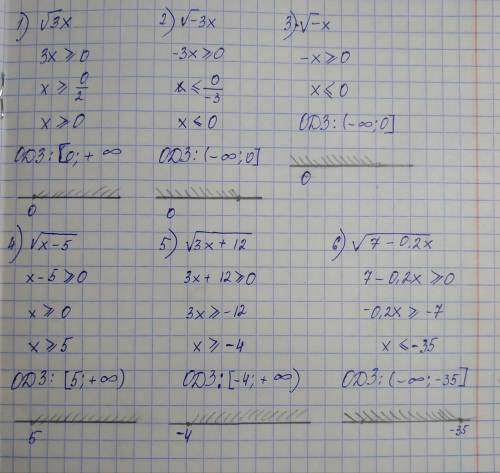 1) √3x
3x ⩾ 0
x ⩾ 0/2
x ⩾ 0
ОДЗ: [0; + ∞
0
2) √-3x
-3x ⩾ 0
x ⩽ 0/-3
x ⩽ 0
ОДЗ: (-∞; 0]
0
3) √-x
-x ⩾ 0
x ⩽ 0
ОДЗ: (-∞; 0]
0
4) √x-5
x-5 ⩾ 0
x ⩾ 0
x ⩾ 5
ОДЗ: [5; +∞)
5
5) √3x + 12
3x + 12 ⩾ 0
3x ⩾ -12
x ⩾ -4
ОДЗ: [-4; +∞)
-4
6) √7 - 0,2x
7 - 0,2x ⩾ 0
-0,2x ⩾ -7
x ⩽ -35
ОДЗ: (-∞; -35]
-35